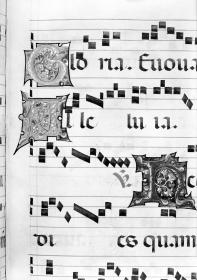 Glo ria. Euoua
A l le lu ia.
℣. H ec
di es quam